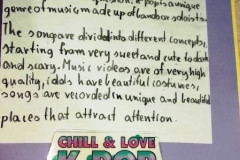 genre of music made up of bands or soloists.
The song are divided into different concepts,
starting from very sweet and cute to dark
and scary. Music videos are of very high
quality, idols have beautiful costumes,
songs are recorded in unique and beautiful
places that attract attention.
CHILL & LOVE
K-POP